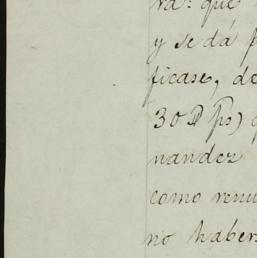 va: que
y se dá p
ficase, de
30D ps) q
nandez
como renu
no haber